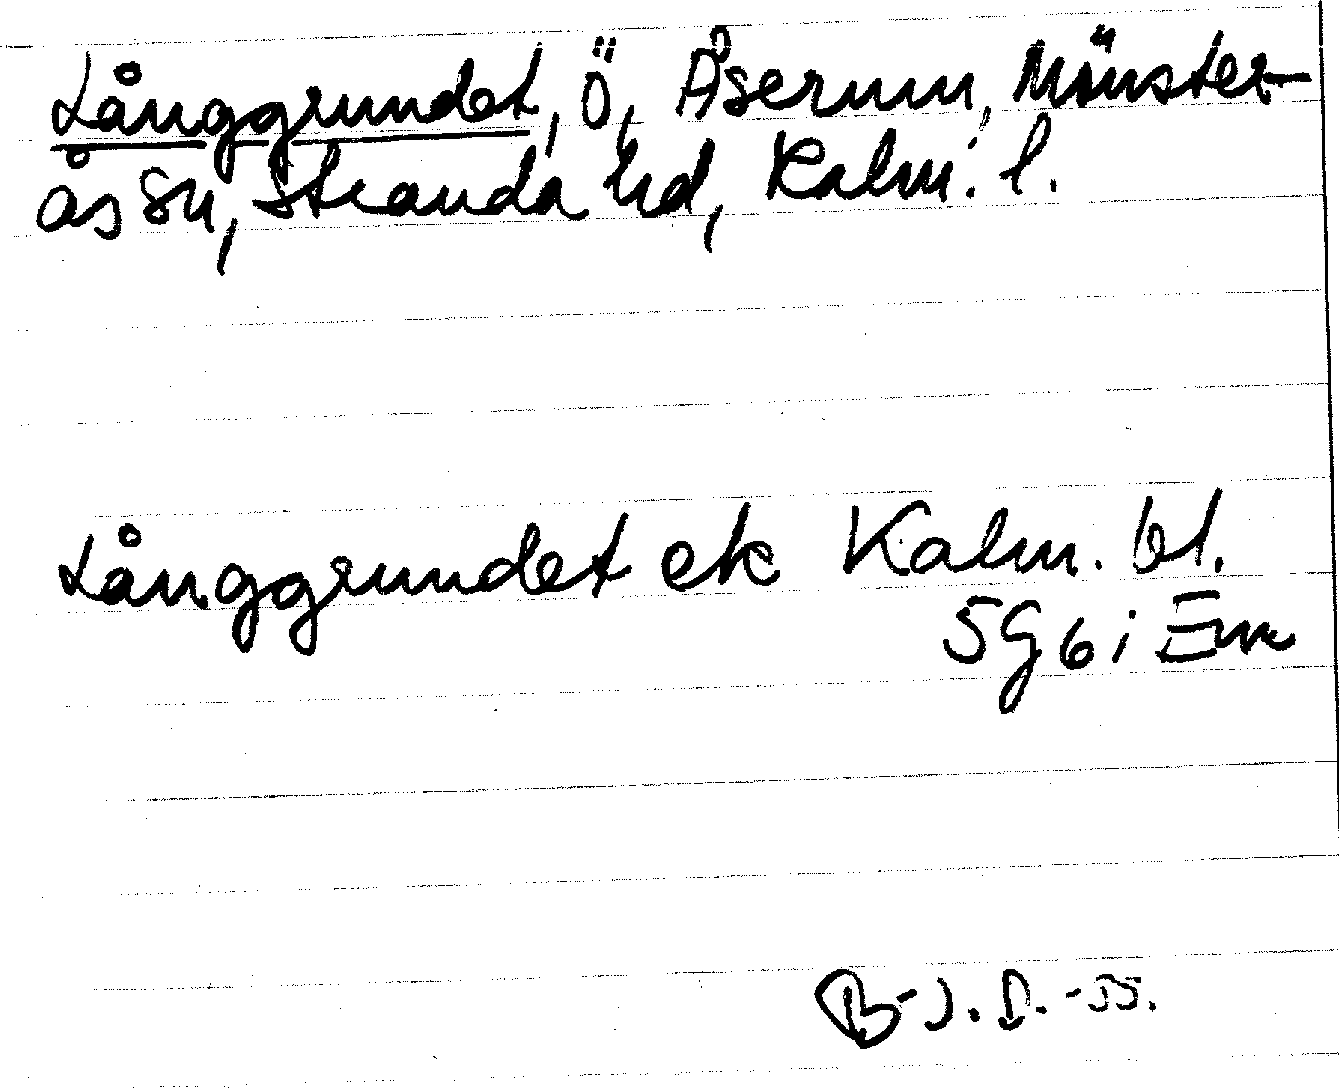 Långgrundet, ö, Åserum, Mönster-
ås sn, Stranda hd, Kalm. l.
Långgrundet ek Kalm. bl.
5G6i Em
B-J. D. -55.